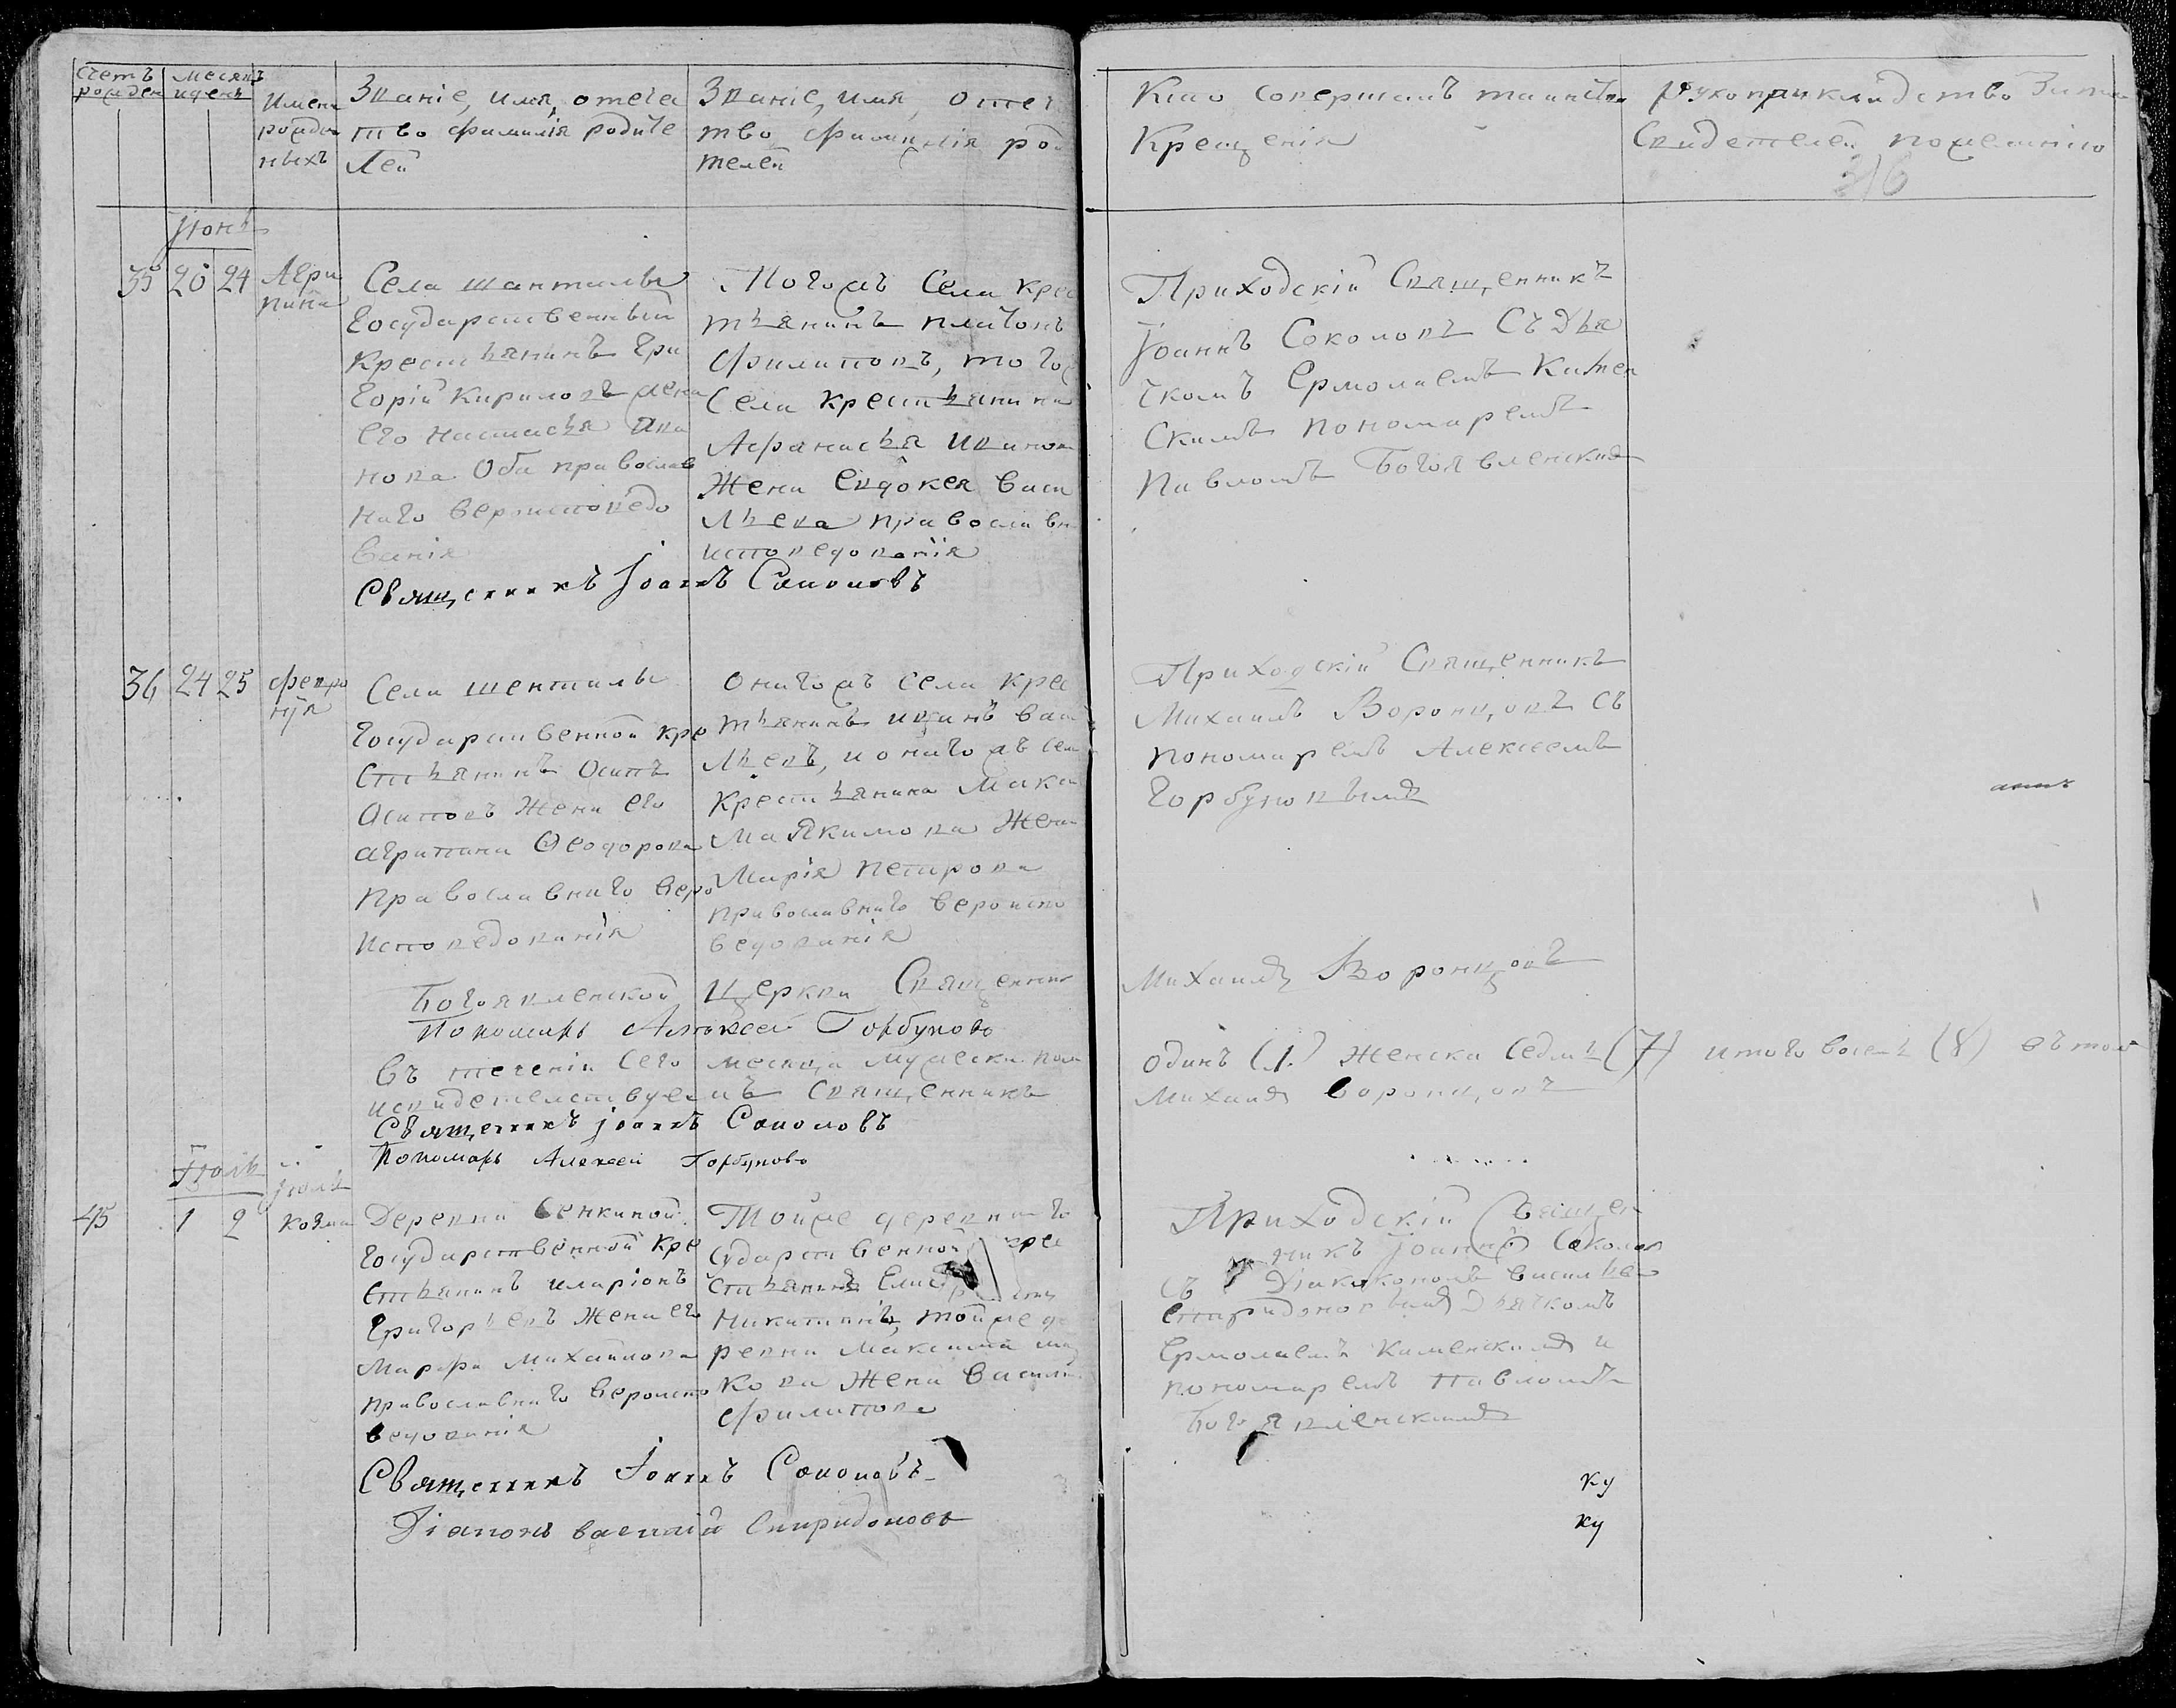 Счетъ рожден
месяцъ и день
Имена рожден ныхъ
Званіе, имя, отече
тво фимилія родите
Лей
Званіе, имя, отеч
тво, фимилія роди
телей
Кто совершалъ таинство
Крещенія
рукоприкладство
Свидетелей по желанію
Іюнь
35 20 24 Агри
пина
Села шантилы
Государственный
Крестьянинъ Гри
Горій Кириловъ жена
его настасья
нова Оба православ
наго вероисповедо
ванія
Тогожъ Села Крес
тьянинъ платонъ
Филиповъ, тогож
Села крестьянина
Афанасья иванова
Жена Евдокея Васи
Льева православн
исповедованія
Священникъ Іоаннъ Соколовъ
Приходскій Священникъ
Іоаннъ Соколовъ Съ Дья
чкомъ Ермолаемъ Камен
скимъ пономаремъ
Павломъ Богоявленским
36 24 25 Февро
нія
Села шентилы
Государственной кре
стьянинъ Осипъ
Осиповъ Жена его
агрипина Ѳеодорова
Православнаго веро
исповедованія
Онагожъ села крес
тьянинъ иванъ Васи
Льевъ, и онагожъ сел
крестьянина Макси
ма Якимова Жена
Марія петрова
православнаго вероиспо
ведованія
Приходскій Священникъ
Михаилъ Воронцовъ Съ
пономаремъ Алексеемъ
Горбуновымъ
Богоявленской Церкви Священник Михаилъ Воронцовъ
Пономарь Алексей Горбуновъ
Въ теченіи Сего месяца мужеска пола одинъ (1.) женска Седмь (7) итого восемь (8) въ том
и свидетелствуемъ Священникъ Михаилъ Воронцовъ
Священникъ Іоаннъ Соколовъ
Пономарь Алексей Горбуновъ
Іюль
Іюль
45 1 2 козма
Деревни Сенкиной
Государственной кре
стьянинъ иларіонъ
Григорьевъ Жена его
Марфа Михаилова
православнаго вероиспо
ведованія
Тойже деревни го
сударственной крес
стьянинъ
Никитинъ, тойже де
ревни Максима
кова Жена Васили
Филипова
Приходскій Священ
никъ Іоаннъ Соколов
съ Діаконономъ Васильем
Спиридоновымъ Дьячкомъ
Ермолаемъ Каменскимъ и
пономаремъ Павломъ
Богоявленскимъ
Священникъ Іоаннъ Соколовъ
ку
Діаконъ василій Спиридоновъ
ку